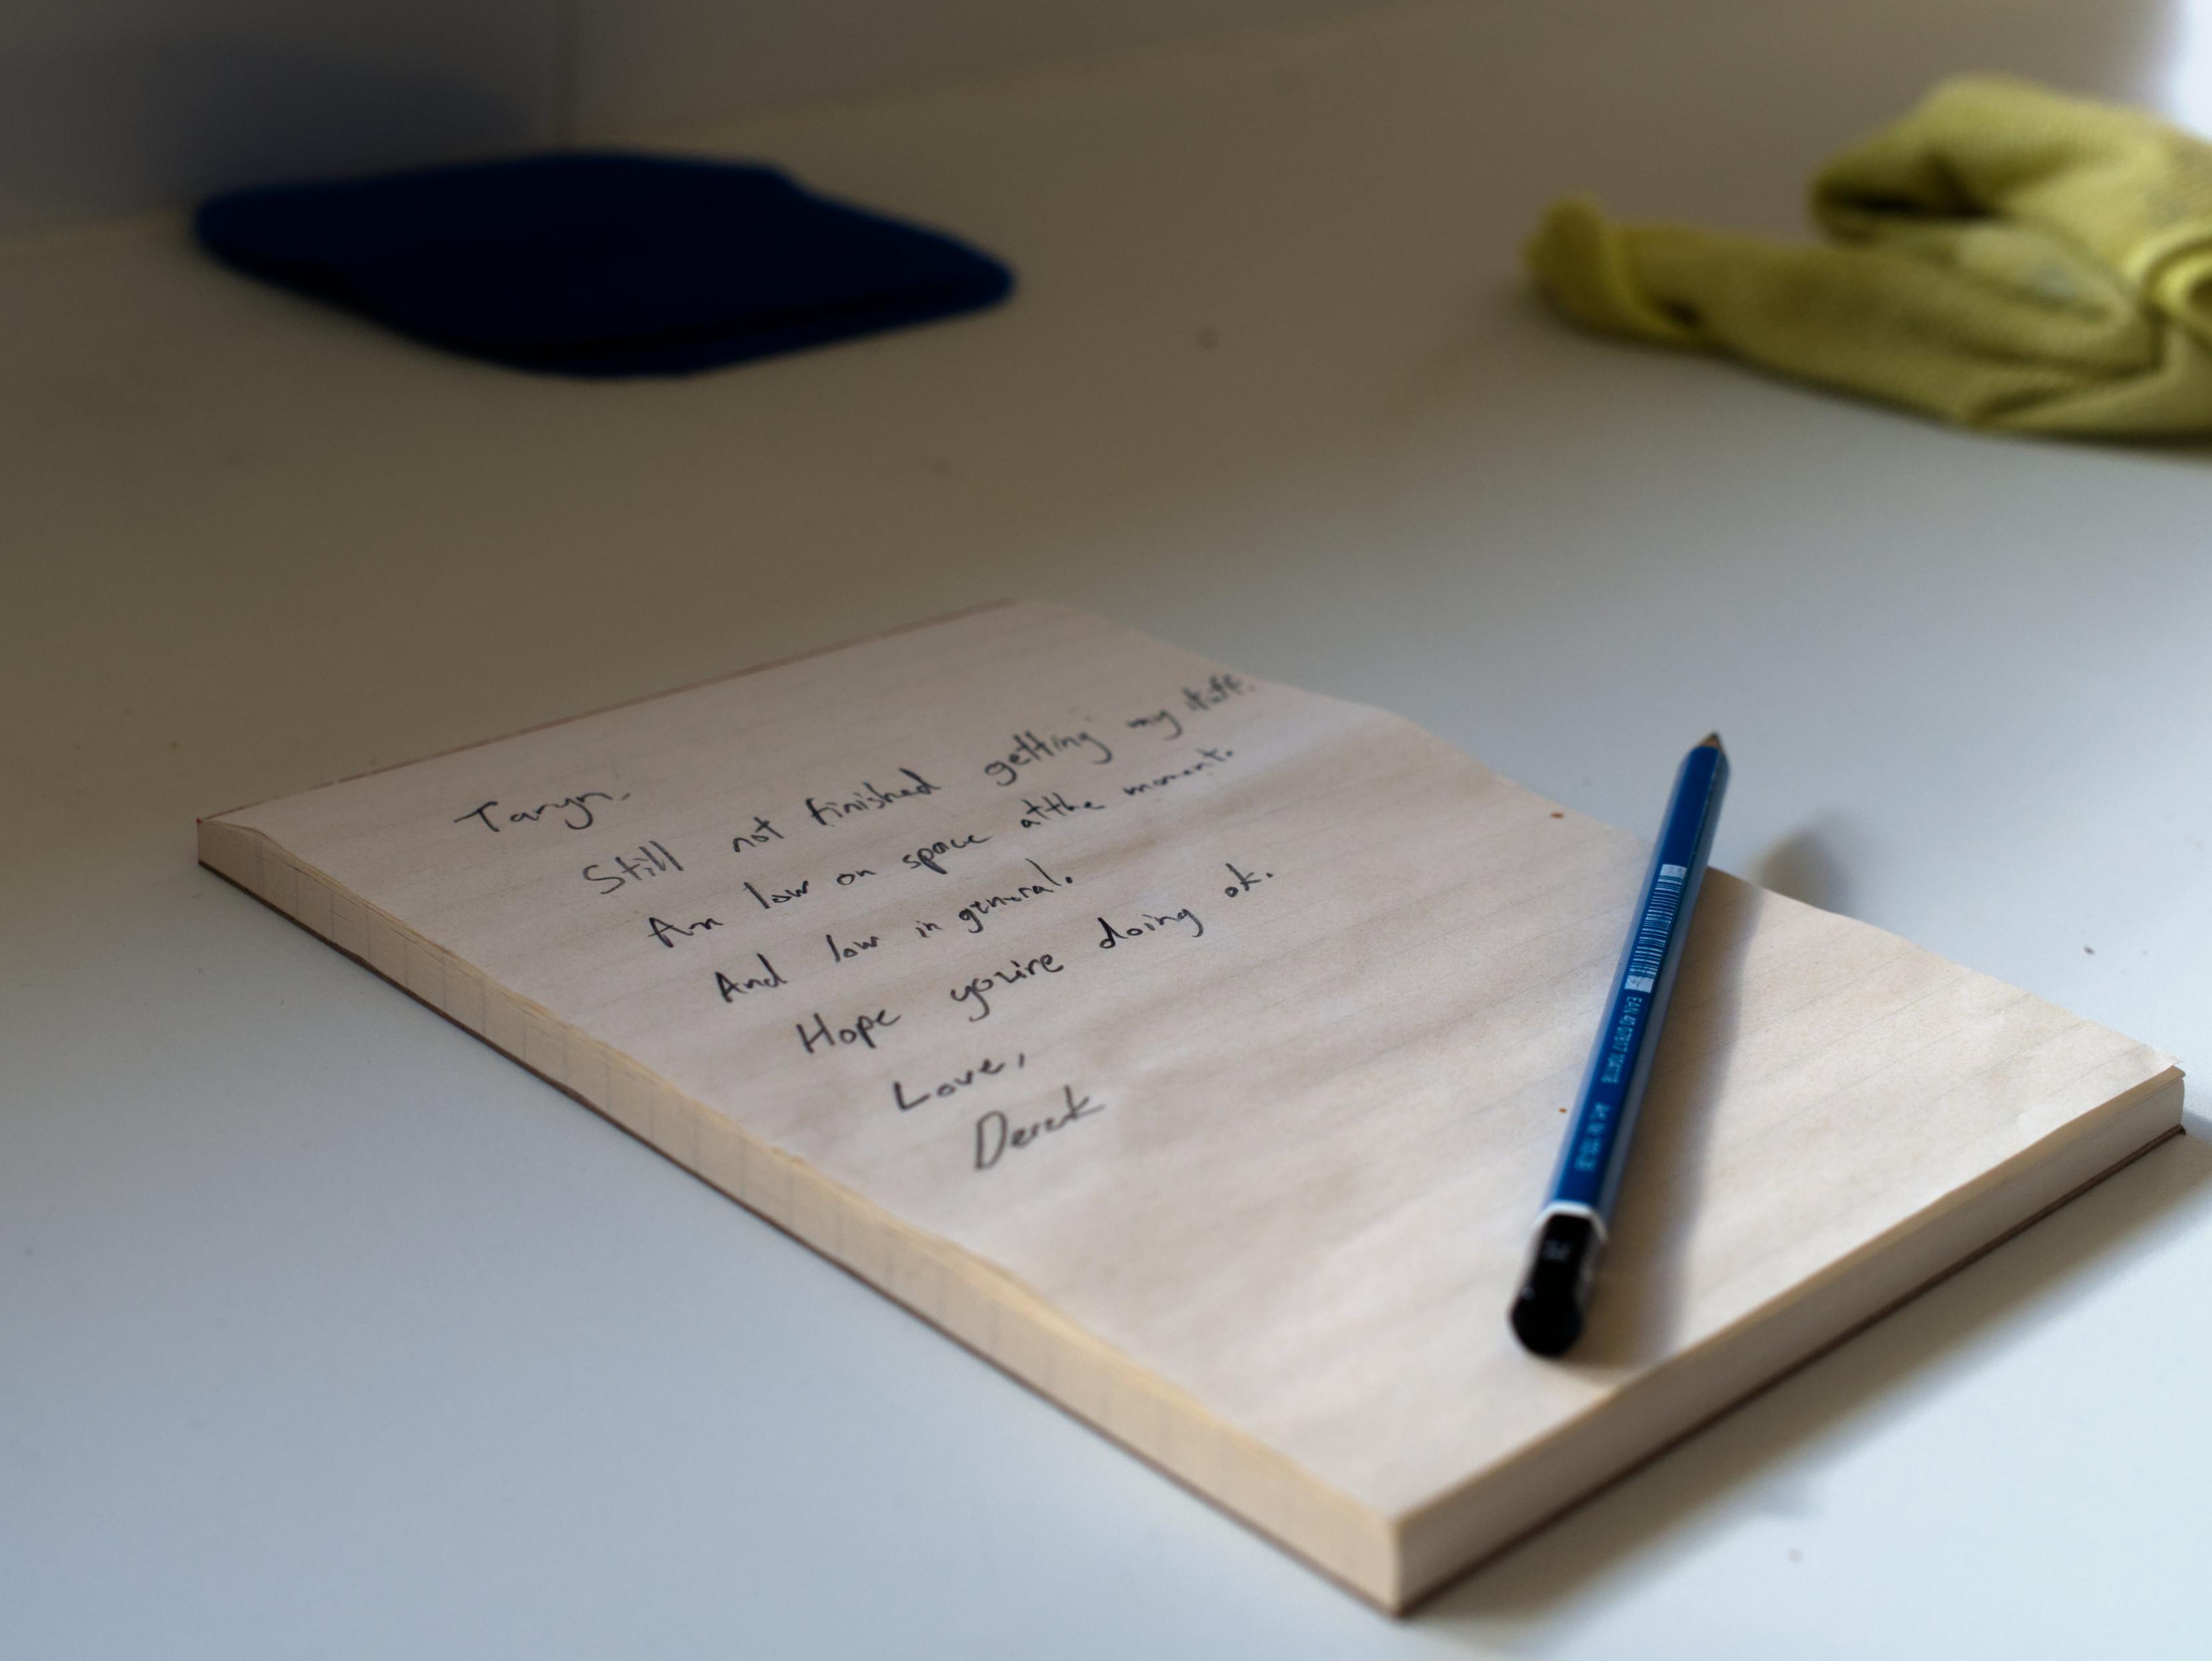 Taryn,
Still not finished getting my stuff.
Am low on space at the moment.
And low in general.
Hope you're doing ok.
Love,
Derek
EAN 40